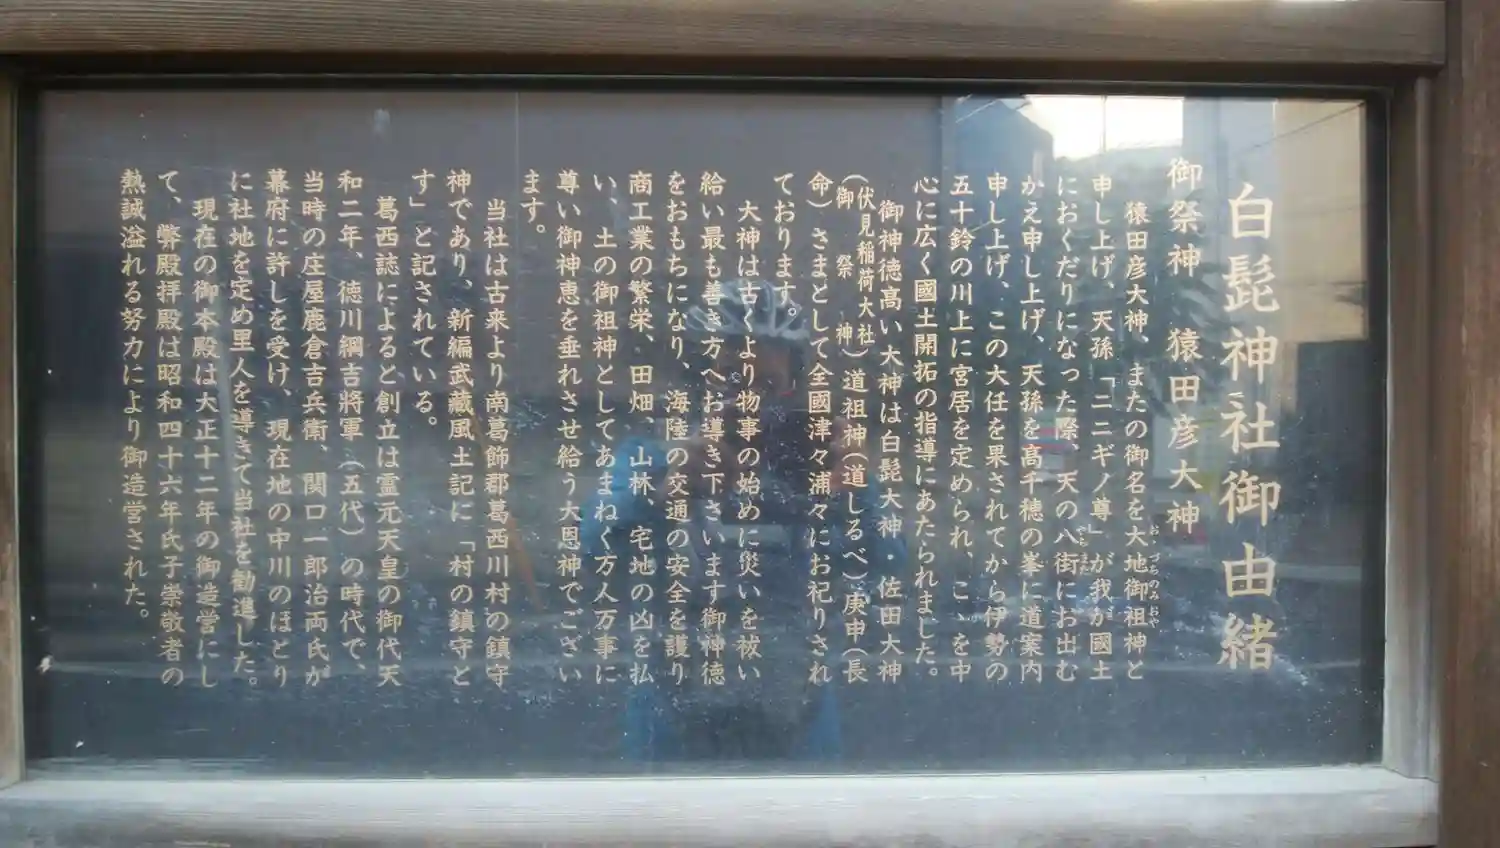 白髭神社御由緒
御祭神　猿田彦大神
猿田彦大神、またの御名を大地御祖神と
おゝづちのみおや
申し上げ、天孫「ニニギノ尊」が我が國土
におくだりになった際、天の八街にお出む
やちまた
かえ申し上げ、天孫を高千穂の峯に道案内
申し上げ、この大任を果されてから伊勢の
五十鈴の川上に宮居を定められ、こゝを中
心に広く國土開拓の指導にあたられました。
御神徳高い大神は白髭大神・佐田大神
（伏見稲荷大社御祭神）道祖神（道しるべ）庚申（長
命）さまとして全國津々浦々にお祀りされ
ております。
大神は古くより物事の始めに災いを祓い
給い最も善き方へお導き下さいます御神徳
をおもちになり、海陸の交通の安全を護り
商工業の繁栄、田畑、山林、宅地の凶を払
い、土の御祖神としてあまねく万人万事に
尊い御神恵を垂れさせ給う大恩神でござい
ます。
当社は古来より南葛飾郡葛西川村の鎮守
神であり、新編武蔵風土記に「村の鎮守と
す」と記されている。
葛西誌によると創立は霊元天皇の御代天
和二年、徳川綱吉將軍（五代）の時代で、
当時の庄屋鹿倉吉兵衛、関口一郎治両氏が
幕府に許しを受け、現在地の中川のほとり
に社地を定め里人を導きて当社を勧進した。
現在の御本殿は大正十二年の御造営にし
て、弊殿拝殿は昭和四十六年氏子崇敬者の
熱誠溢れる努力により御造営された。